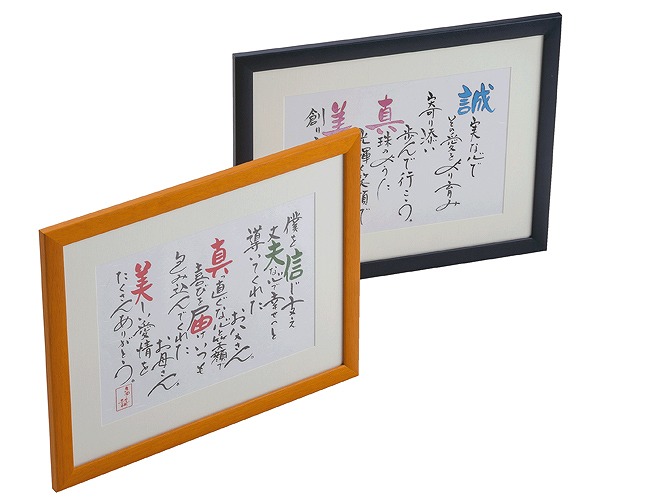 僕を信じ支え
丈夫な心で幸せへと
導いてくれた
お父さん。
真っ直ぐな心と笑顔で
喜びを届けいつも
包み込んでくれた
お母さん。
美しい愛情を
たくさんありがとう。
誠実な心で
その愛をより育み
寄り添い
歩んで行こう。
真珠のように
光輝く笑顔で
美
創り